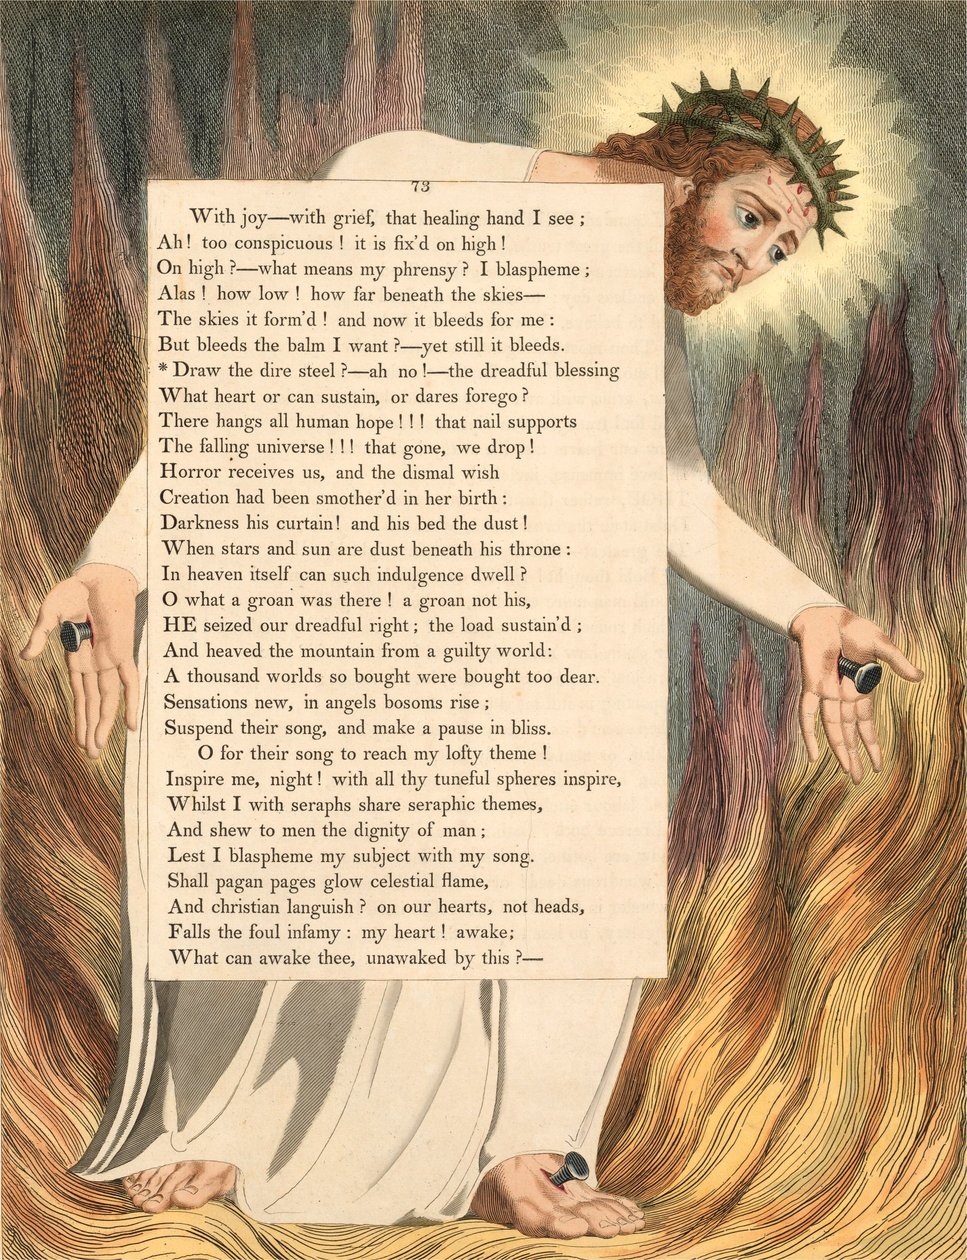 73
With joy—with grief, that healing hand I see ;
Ah! too conspicuous ! it is fix'd on high !
On high ?—what means my phrensy ? I blaspheme ;
Alas ! how low ! how far beneath the skies—
The skies it form'd ! and now it bleeds for me :
But bleeds the balm I want ?—yet still it bleeds.
* Draw the dire steel ?—ah no !—the dreadful blessing
What heart or can sustain, or dares forego ?
There hangs all human hope ! ! ! that nail supports
The falling universe ! ! ! that gone, we drop !
Horror receives us, and the dismal wish
Creation had been smother'd in her birth :
Darkness his curtain! and his bed the dust !
When stars and sun are dust beneath his throne :
In heaven itself can such indulgence dwell ?
O what a groan was there ! a groan not his,
HE seized our dreadful right ; the load sustain'd ;
And heaved the mountain from a guilty world:
A thousand worlds so bought were bought too dear.
Sensations new, in angels bosoms rise ;
Suspend their song, and make a pause in bliss.
O for their song to reach my lofty theme !
Inspire me, night ! with all thy tuneful spheres inspire,
Whilst I with seraphs share seraphic themes,
And shew to men the dignity of man ;
Lest I blaspheme my subject with my song.
Shall pagan pages glow celestial flame,
And christian languish ? on our hearts, not heads,
Falls the foul infamy : my heart ! awake;
What can awake thee, unawaked by this ?—